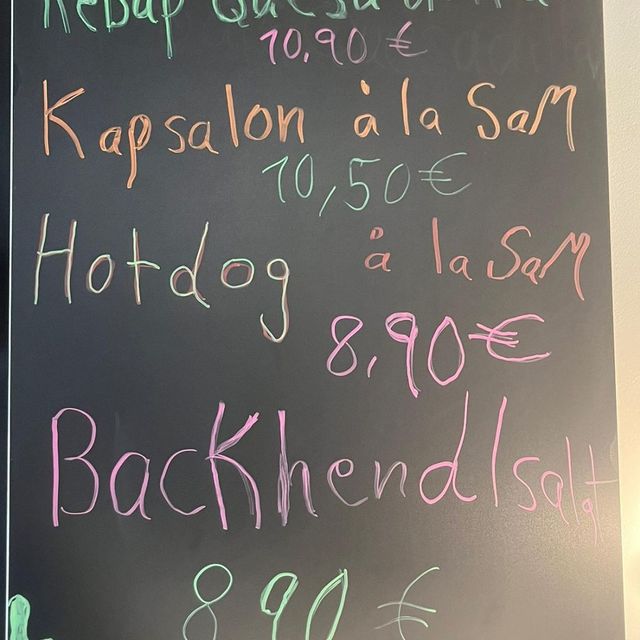 Kebap Quesadilla
10,90 €
Kapsalon à la SaM
10,50 €
Hotdog à la SaM
8,90 €
Backhendlsalat
8,90 €